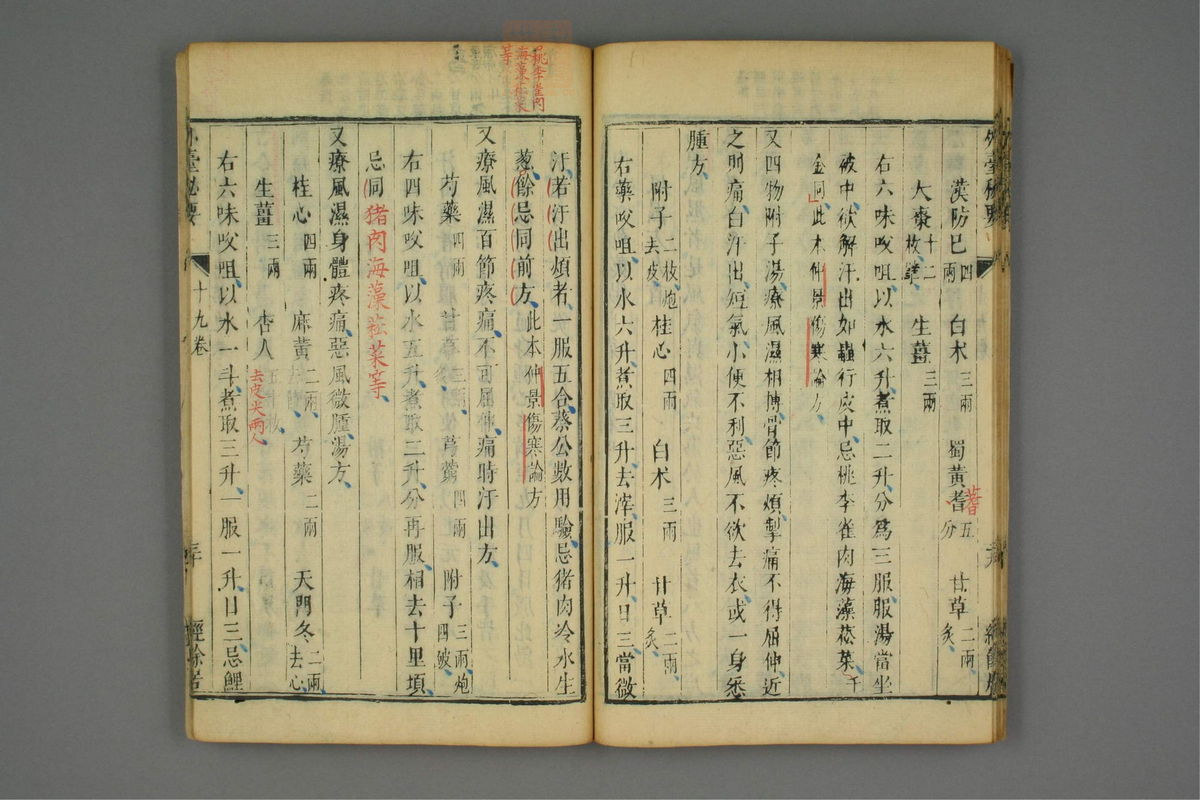 漢防己四兩 白术三兩 蜀黃耆五分 甘草二兩炙
蓍
大棗十二枚擘 生薑三兩
右六味㕮咀以水六升煮取二升分爲三服服湯當坐
被中欲解汗出如蟲行皮中忌桃李雀肉海藻菘菜千
金同此本仲景傷寒論方
又四物附子湯療風濕相摶骨節疼煩掣痛不得屈伸近
之則痛白汗出短氣小便不利惡風不欲去衣或一身悉
腫方
附子二枚炮去皮 桂心四兩 白术三兩 甘草二兩炙
右藥㕮咀以水六升煮取三升去滓服一升日三當微
桃李雀肉
海藻菘菜
等
汗若汗出煩者一服五合蔡公數用驗忌猪肉冷水生
葱餘忌同前方此本仲景傷寒論方
又療風濕百節疼痛不可屈伸痛時汗出方
芍藥四兩 甘草三兩 芎藭四兩 附子三兩炮四破
右四味㕮咀以水五升煮取二升分再服相去十里頃
忌同猪肉海藻菘菜等
又療風濕身體疼痛惡風微腫湯方
桂心四兩 麻黃二兩 芍藥二兩 天門冬二兩去心
生薑三兩 杏人五十枚
去皮尖兩人
右六味㕮咀以水一斗煮取三升一服一升日三忌鯉
外臺秘要 十九卷